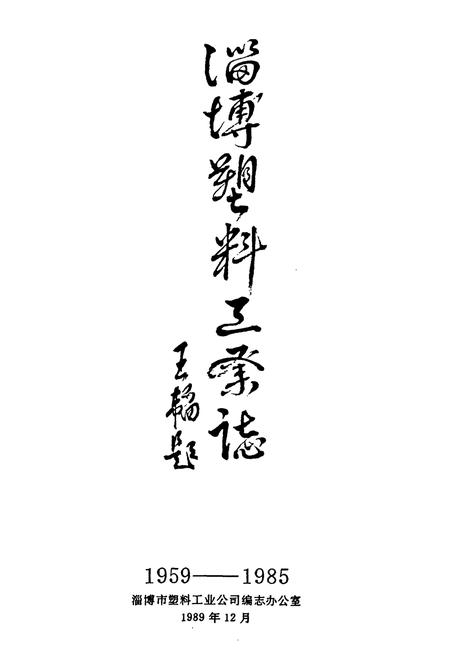 淄博塑料工业誌
王韬题
1959——1985
淄博市塑料工业公司编志办公室
1989年12月